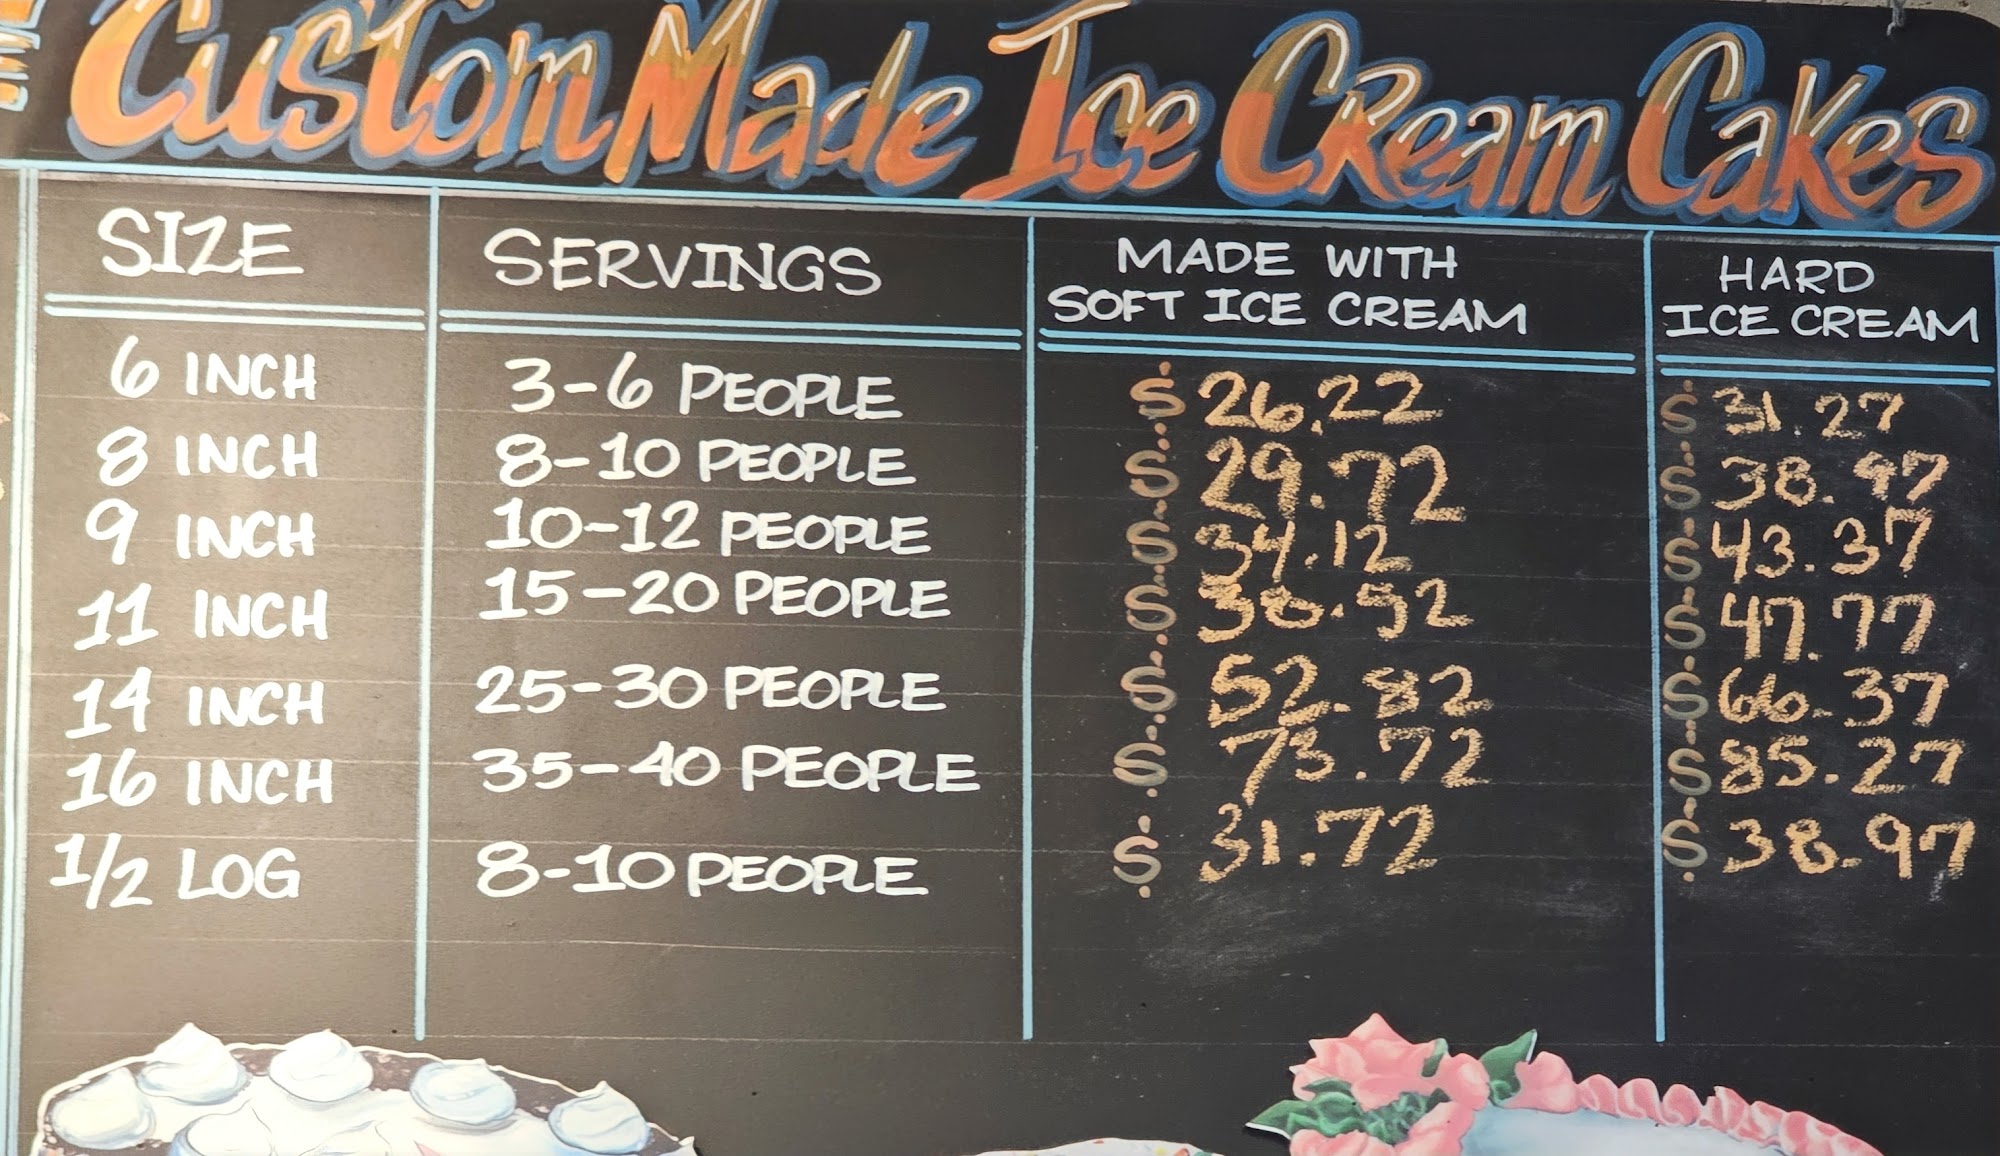 Custom Made Ice Cream Cakes
SIZE SERVINGS MADE WITH SOFT ICE CREAM HARD ICE CREAM
6 INCH 3-6 PEOPLE $ 26.22 $ 31.27
8 INCH 8-10 PEOPLE $ 29.72 $ 38.97
9 INCH 10-12 PEOPLE $ 34.12 $ 43.37
11 INCH 15-20 PEOPLE $ 38.52 $ 47.77
14 INCH 25-30 PEOPLE $ 52.82 $ 66.37
16 INCH 35-40 PEOPLE $ 73.72 $ 85.27
1/2 LOG 8-10 PEOPLE $ 31.72 $ 38.97